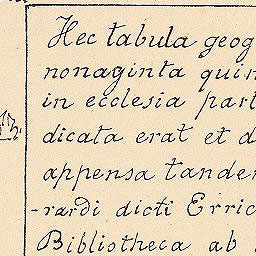 Hec tabula geog
nonaginta quin
in ecclesia part
dicata erat et d
appensa tanden
-rardi dicti Erric
Bibliotheca ab